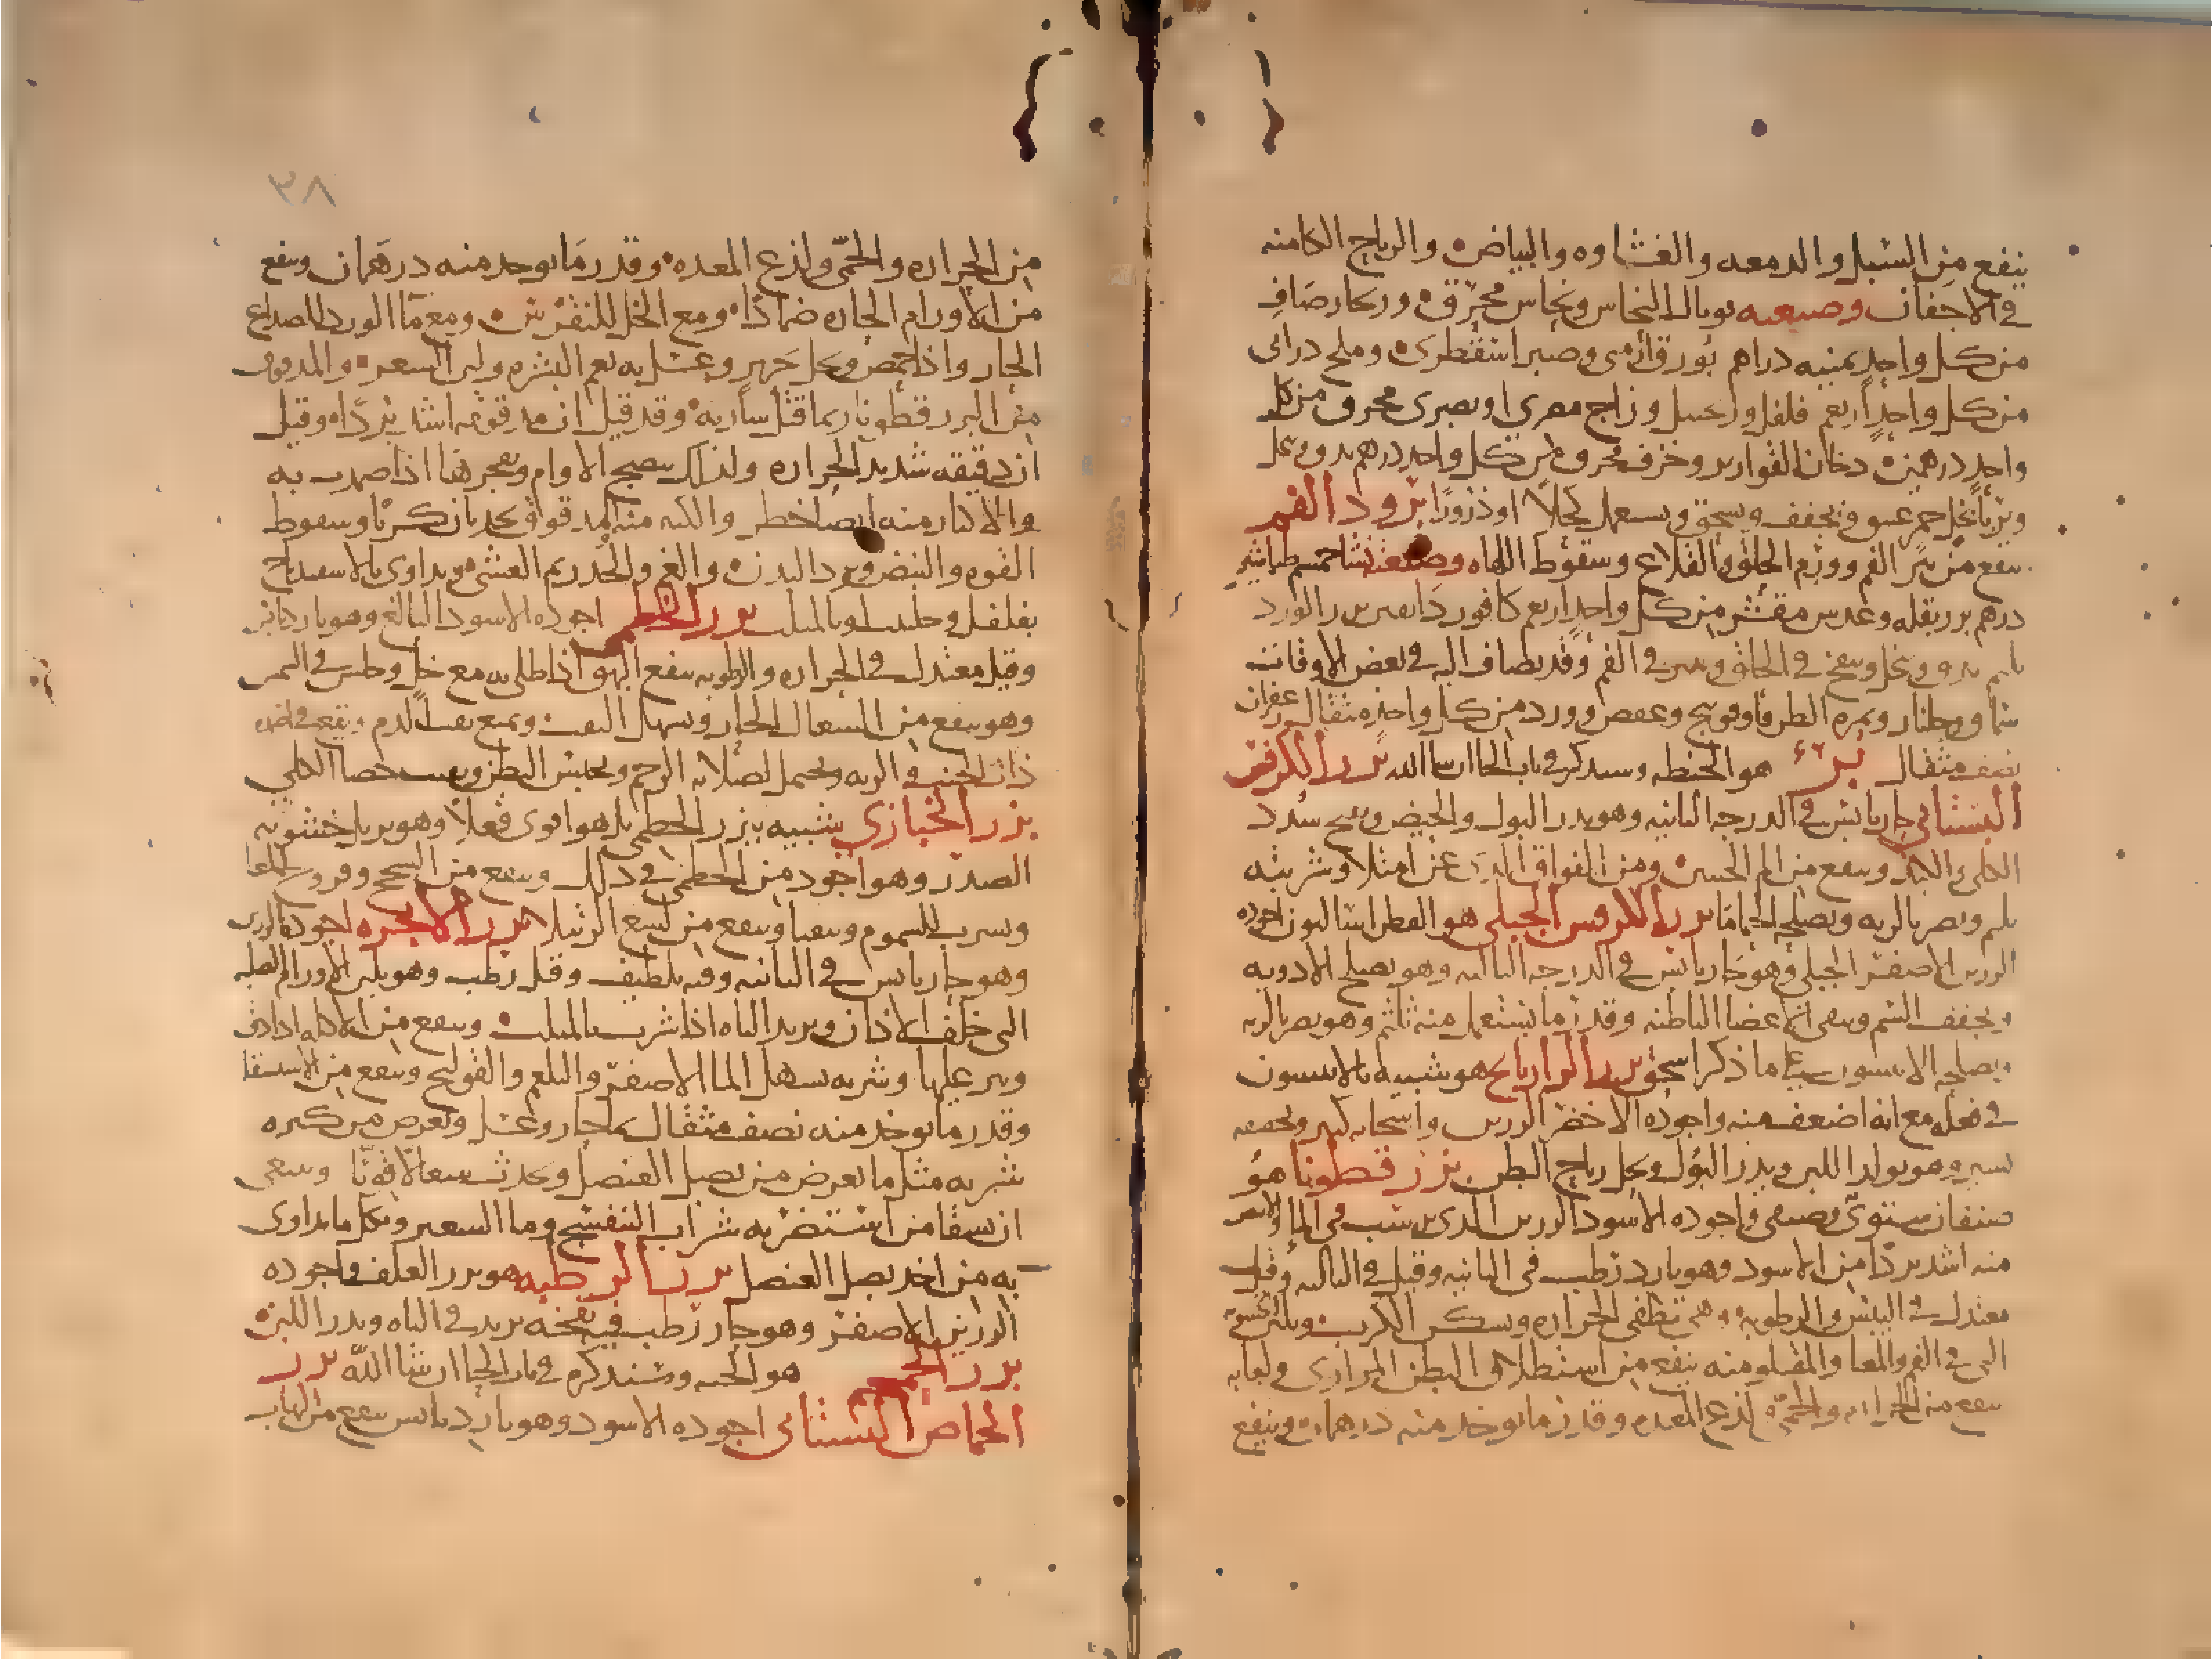 ينفع من السبل والدمعه والغشاوه والبياض والرياح الكامنه
في الاجفان وصنعته توبال النحاس ونحاس محرق وزنجار صاف
من كل واحد ثمنيه دراهم بورق ارمنى وصبر اسقطرى وملح درانى
من كل واحد اربع فلفل وزنجبيل وزاج مصرى او بصرى محرق من كل
واحد درهمين دخان القوارير وخزف محرق من كل واحد درهم يدق وينخل
ويربا بخل خمر عتيق ويجفف ويسحق ويستعمل كحلا او ذرورا برود الفم
ينفع من بثر الفم وورم الحلق والقلاع وسقوط اللهاه وصنعته نشا خمسه طباشير
درهم بزر بقله وعدس مقشر من كل واحد اربع كافور دانقين بزر الورد
يدق وينخل وينفخ في الحلق وينثر في الفم وقد يضاف اليه في بعض الاوقات
سماق وجلنار وثمره الطرفا وعفص وورد من كل واحد مثقال زعفران
نصف مثقال بر هو الحنطه وسيذكر في باب الحا ان شا الله بزر الكرفس
البستاني حار يابس في الدرجه الثانيه وهو يدر البول والحيض ويفتح سدد
الكلى والكبد وينفع من الم الجنبين ومن الفواق الذى عن امتلا وشربته
ويضر بالريه ويصلحه الحماما بزر الكرفس الجبلى هو الفطراساليون اجوده
الرزين الاصفر الجبلى وهو حار يابس في الدرجه الثالثه وهو يصلح الادويه
ويجفف السم وينقى الاعضا الباطنه وقدر ما يستعمل منه ثلثم وهو يضر بالريه
ويصلحه الانيسون على ما ذكر اسحق بزر الرازيانج هو شبيه بالانيسون
في فعله مع انه اضعف منه واجوده الاخضر الرزين واسخانه كثير وتجفيفه
يسير وهو يولد اللبن ويدر البول ويحل رياح البطن بزر قطونا هو
صنفان شتوى وصيفى واجوده الاسود الرزين الذى يرسب في الما والاصفر
منه اشد بردا من الاسود وهو بارد رطب في الثانيه وقيل في الثالثه وقيل
معتدل في اليبس والرطوبه وهى تطفى الحراره ويسكن الكرب ويلين الخشونه
التى في الفم والمعا والمقلو منه ينفع من استطلاق البطن المرارى ولعابه
ينفع من الحراره والحمى ولذع المعده وقدر ما يوخذ منه درهمان وينفع
٣٨
من الحراره والحمى ولذع المعده وقدر ما يوخذ منه درهمان وينفع
من الاورام الحاره ضمادا ومع الخل للنقرس ومع ما الورد للصداع
الحار واذا حمص ونخل وغسل به نعم البشره ولين الشعر والمدقوق
من البزر قطونا ربما قتل شاربه وقد قيل ان مدقوقه اشد بردا وقيل
ان دقيقه شديد الحراره ولذلك ينضج الاورام ويفجرها اذا ضمدت به
والاكثار منه ايضا خطر والكثير منه المدقوق يحدث كربا وسقوط
القوه والنبض وبرد البدن والغم والخدر ثم الغشى ويداوى بالاسفيداج
بفلفل وحلتيت وبالمثلث بزر الخطمى اجوده الاسود البالغ وهو بارد يابس
وقيل معتدل في الحراره والرطوبه ينفع البهق اذا طلى به مع خل وجلس في الشمس
وهو ينفع من السعال الحار ويسهل النفث ويمنع نفث الدم وينفع في اخر
ذات الجنب وذات الريه ويحتمل لصلابه الرحم ويحبس البطن ويفتت حصا الكلى
بزر الخبازى شبيه ببزر الخطمى بل هو اقوى فعلا وهو يزيل خشونه
الصدر وهو اجود من الخطمى في ذلك وينفع من السحج وقروح المعا
ويشرب للسموم وينفع من لسع الرتيلا بزر الانجره اجوده الرزين
وهو حار يابس في الثانيه وفيه تلطيف وقيل رطب وهو يلين الاورام الصلبه
التى خلف الاذان ويزيد الباه اذا شرب بالمثلث وينفع من الاكله اذا دق
ونثر عليها وشربه يسهل الما الاصفر والبلغم والقولنج وينفع من الاستسقا
وقدر ما يوخذ منه نصف مثقال بما حار وعسل ويعرض من كثره
شربه مثل ما يعرض من بصل العنصل ويحدث سعالا قويا وينبغى
ان يسقا من استضر به شراب البنفسج وما الشعير وبكل ما يداوى
به من اخذ بصل العنصل بزر الرطبه هو بزر العلف واجوده
الرزين الاصفر وهو حار رطب فيه نفخه يزيد في الباه ويدر اللبن
بزر الخمخم هو الخبه وسنذكره في باب الخا ان شا الله بزر
الحماض البستانى اجوده الاسود وهو بارد يابس ينفع من التهاب